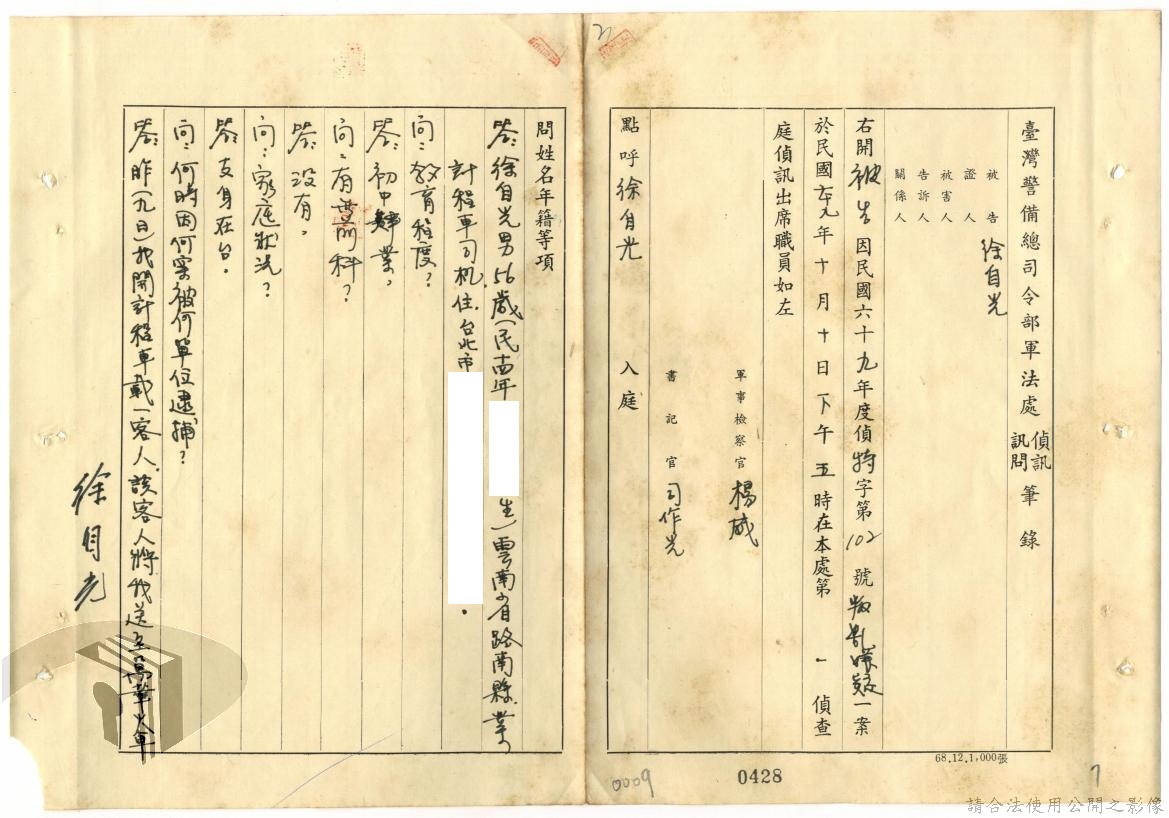 臺灣警備總司令部軍法處 偵訊 訊問 筆錄
被告 徐自光
證人
被害人
告訴人
關係人
右開被告因民國六十九年度偵特字第102號叛亂嫌疑一案
於民國六十九年十月十日下午五時在本處第一偵查
庭偵訊出席職員如左
軍事檢察官 楊威
書記官 司作光
點呼徐自光 入庭
問姓名年籍等項
答:徐自光男56歲(民 年 生)雲南省路南縣業
計程車司机住台北市 。
問:教育程度?
答:初中畢業。
問:有前科?
答:沒有。
問:家庭狀況?
答:支身在台。
問:何時因何案被何單位逮捕?
答:昨(九日)我開計程車載一客人,該客人將我送至萬華火車
徐自光
68.12.1,000張
0428
0009
7
請合法使用公開之影像